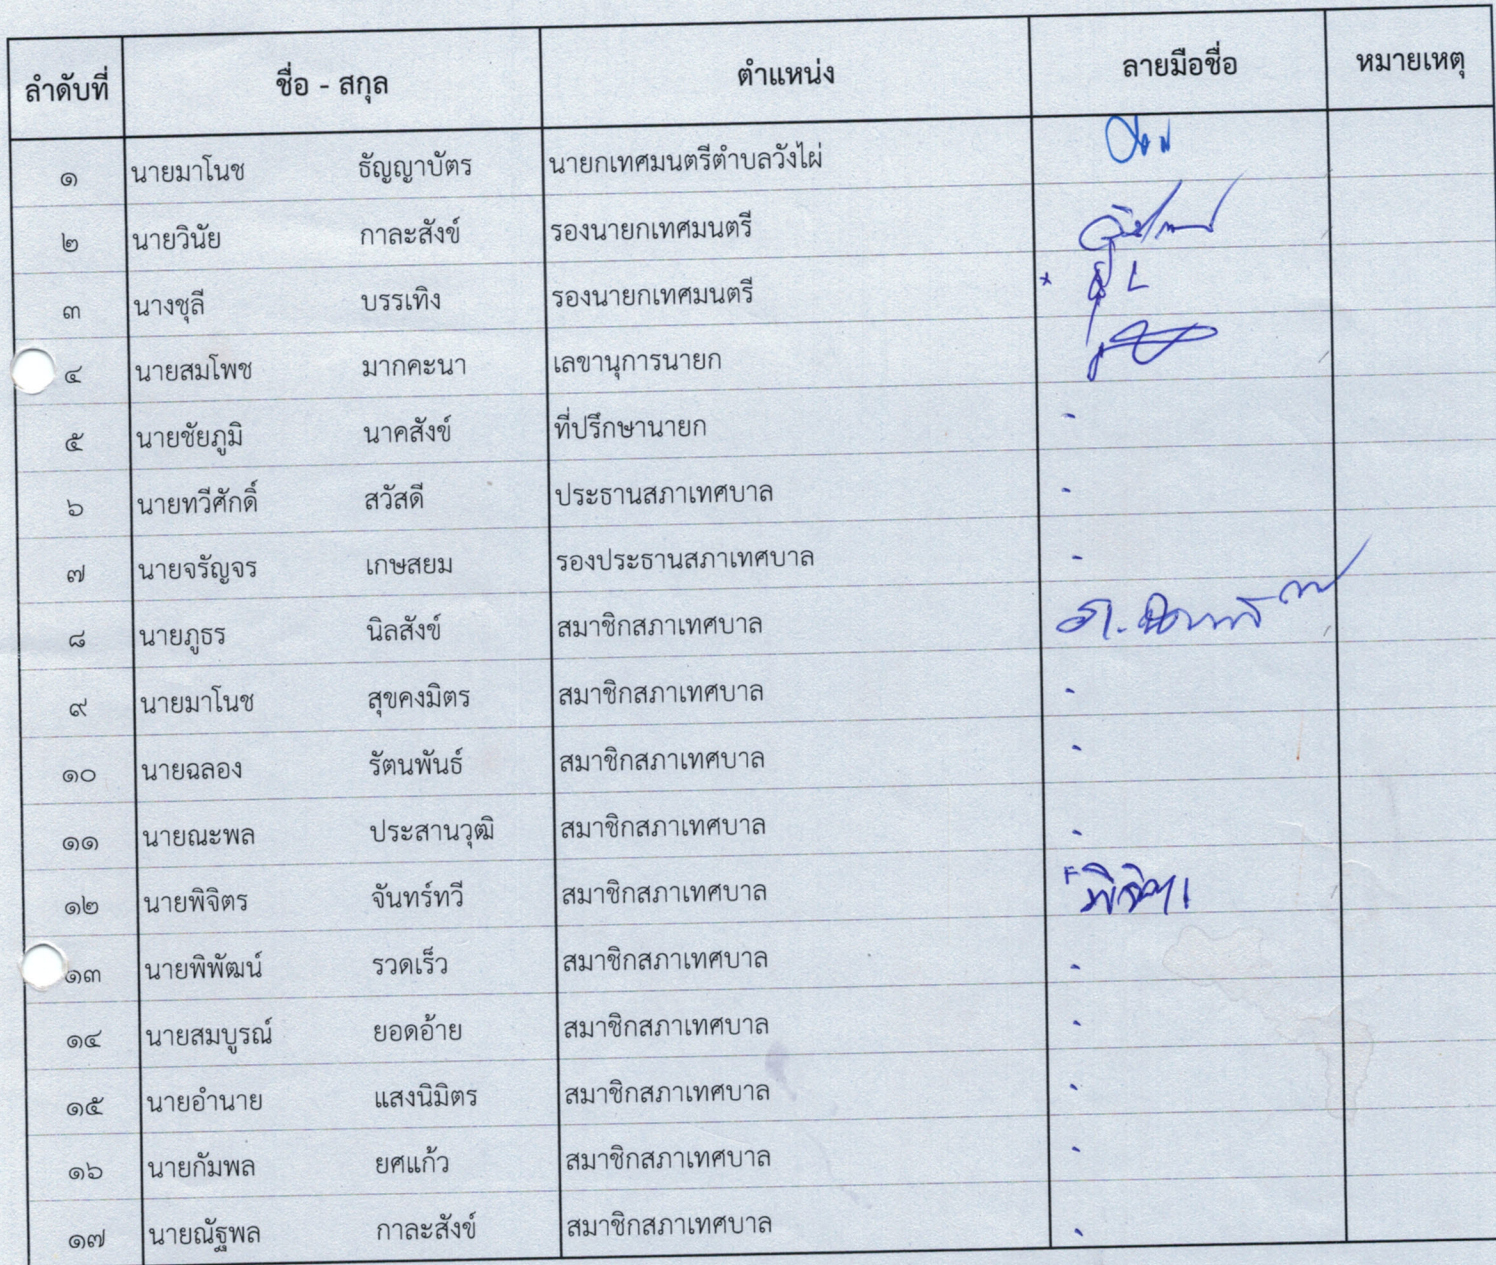 ลำดับที่ ชื่อ - สกุล ตำแหน่ง ลายมือชื่อ หมายเหตุ
๑ นายมาโนช ธัญญาบัตร นายกเทศมนตรีตำบลวังไผ่
๒ นายวินัย กาละสังข์ รองนายกเทศมนตรี
๓ นางชุลี บรรเทิง รองนายกเทศมนตรี
๔ นายสมโพช มากคะนา เลขานุการนายก
๕ นายชัยภูมิ นาคสังข์ ที่ปรึกษานายก -
๖ นายทวีศักดิ์ สวัสดี ประธานสภาเทศบาล -
๗ นายจรัญจร เกษสยม รองประธานสภาเทศบาล -
๘ นายภูธร นิลสังข์ สมาชิกสภาเทศบาล
๙ นายมาโนช สุขคงมิตร สมาชิกสภาเทศบาล -
๑๐ นายฉลอง รัตนพันธ์ สมาชิกสภาเทศบาล -
๑๑ นายณะพล ประสานวุฒิ สมาชิกสภาเทศบาล -
๑๒ นายพิจิตร จันทร์ทวี สมาชิกสภาเทศบาล
๑๓ นายพิพัฒน์ รวดเร็ว สมาชิกสภาเทศบาล -
๑๔ นายสมบูรณ์ ยอดอ้าย สมาชิกสภาเทศบาล -
๑๕ นายอำนาย แสงนิมิตร สมาชิกสภาเทศบาล -
๑๖ นายกัมพล ยศแก้ว สมาชิกสภาเทศบาล -
๑๗ นายณัฐพล กาละสังข์ สมาชิกสภาเทศบาล -